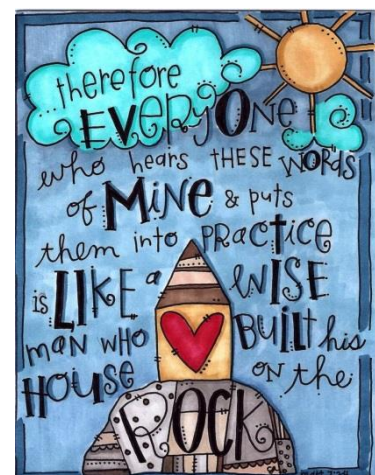 therefore
EVERyONe
who hears THESE WORDS
of MiNE & puts
them into PRacticE
is LIKE a WISE
man WHO BUiLt his
HOUSe ON the
ROCK